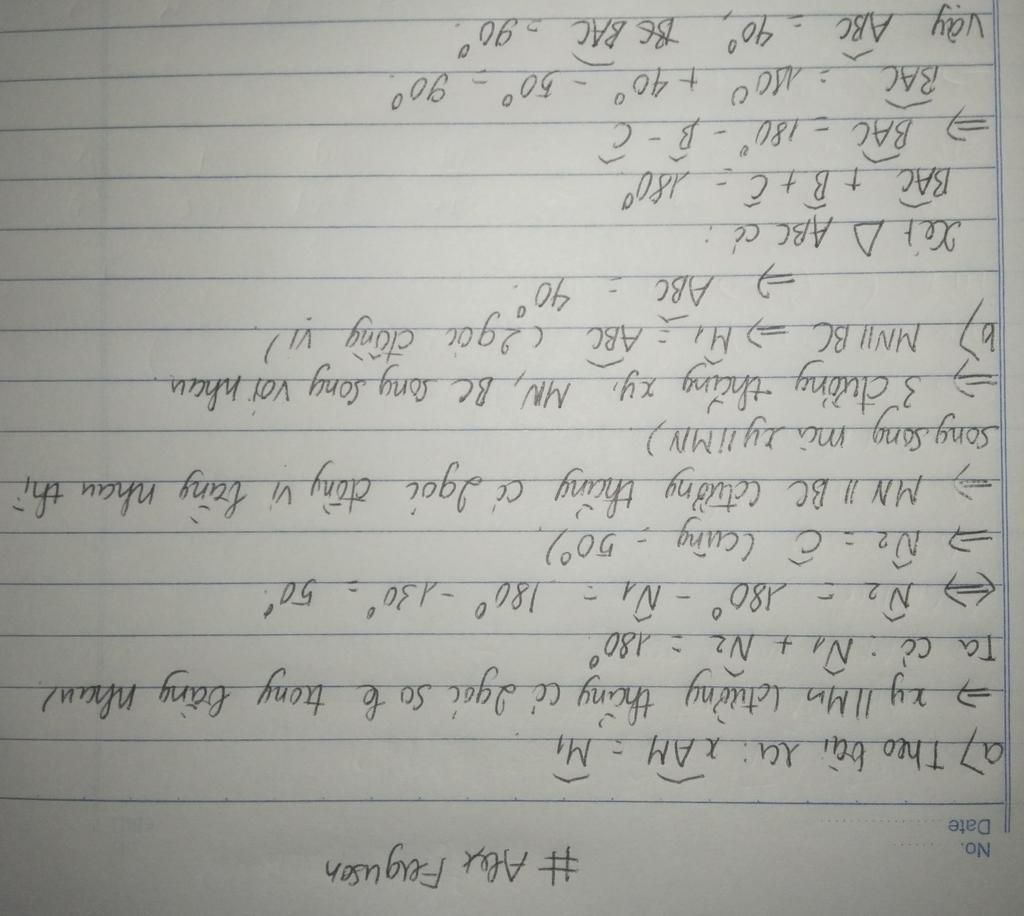 # Alex Ferguson
No.
Date
a) Theo bài ra: xAM = M1
=> xy // Mn (đường thẳng có 2 góc so le trong bằng nhau)
Ta có: N1 + N2 = 180°
<=> N2 = 180° - N1 = 180° - 130° = 50°.
=> N2 = C (cùng = 50°)
=> MN // BC (đường thẳng có 2 góc đồng vị bằng nhau thì
song song mà xy // MN)
=> 3 đường thẳng xy, MN, BC song song với nhau
b) MN // BC => M1 = ABC (2 góc đồng vị)
=> ABC = 40°.
Xét Δ ABC có:
BAC + B + C = 180°
=> BAC = 180° - B - C
BAC = 180° + 40° - 50° = 90°.
Vậy ABC = 40°, BC BAC = 90°.